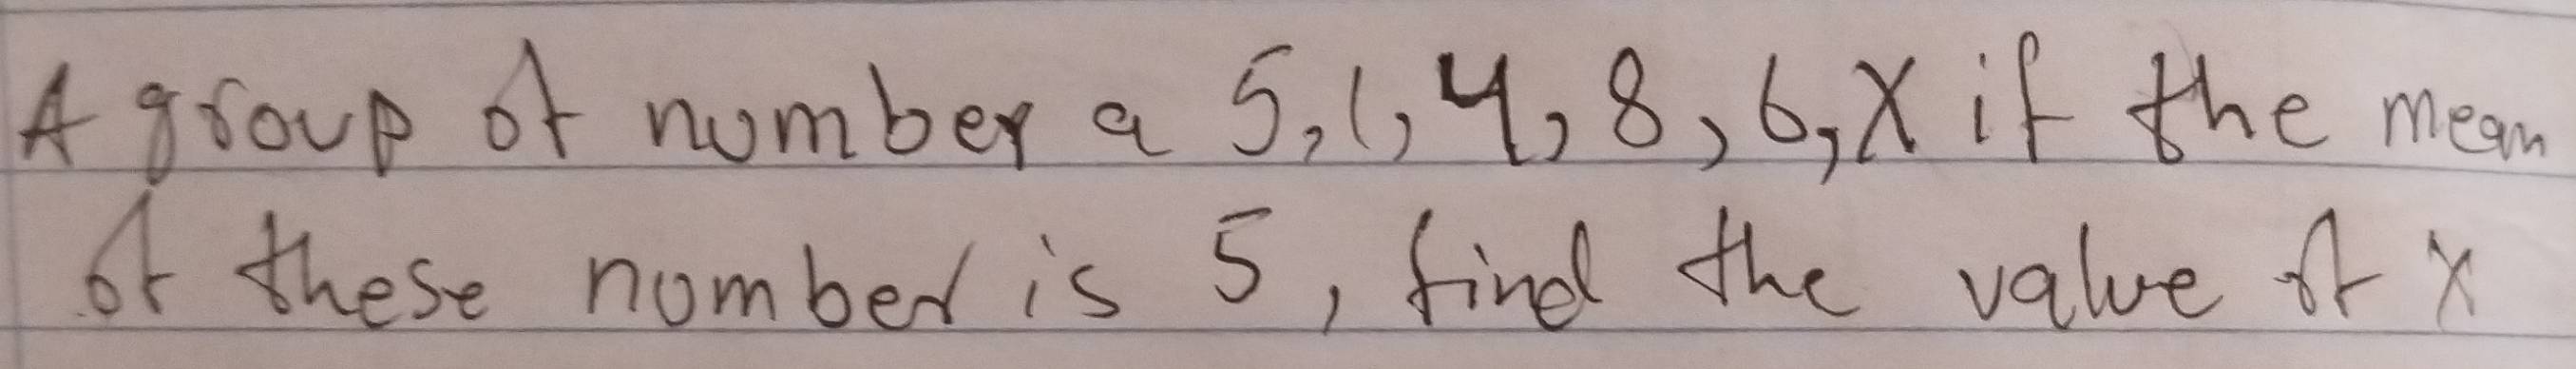 A group of number a 5,1,4,8,6,X if the mean
of these number is 5, find the value of X